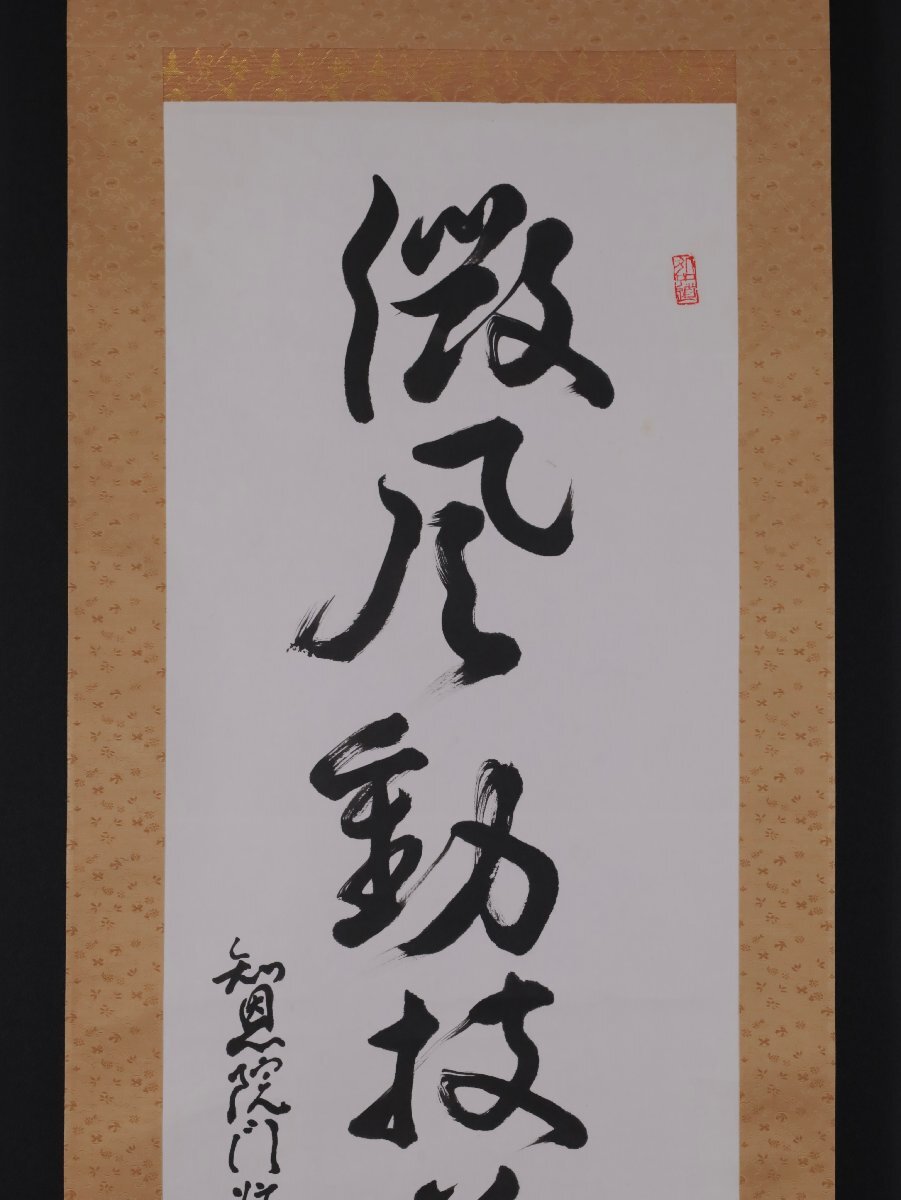 微風動枝
知恩院门